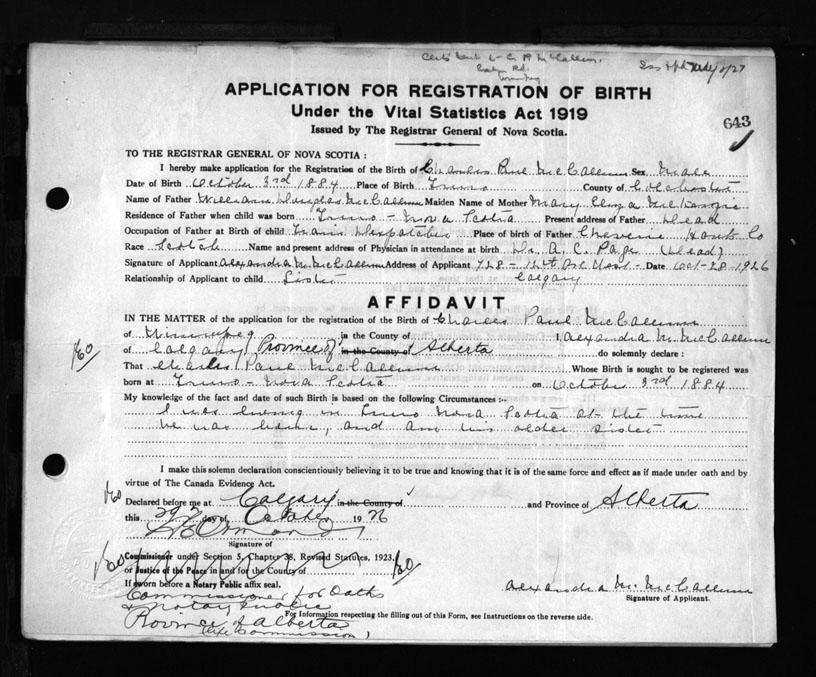 Certs sent to C P McCallum,
Rd.
Winnipeg
May 2/27
APPLICATION FOR REGISTRATION OF BIRTH
Under the Vital Statistics Act 1919
643
Issued by The Registrar General of Nova Scotia.
TO THE REGISTRAR GENERAL OF NOVA SCOTIA :
I hereby make application for the Registration of the Birth of Charles Paul McCallum Sex Male
Date of Birth October 3rd 1884 Place of Birth Truro County of Colchester
Name of Father William Douglas McCallum Maiden Name of Mother Mary Eliza McKenzie
Residence of Father when child was born Truro - Nova Scotia Present address of Father Dead
Occupation of Father at Birth of child Train Despatcher Place of birth of Father Cheverie Hants Co
Race Scotch Name and present address of Physician in attendance at birth Dr. A. C. Page (Dead)
Signature of Applicant Alexandra M. McCallum Address of Applicant 728 - 12th Ave West - Date Oct - 28 - 1926
Relationship of Applicant to child Sister Calgary
AFFIDAVIT
IN THE MATTER of the application for the registration of the Birth of Charles Paul McCallum
of Winnipeg in the County of I, Alexandra M. McCallum
of Calgary Province of in the County of Alberta do solemnly declare :
That Charles Paul McCallum Whose Birth is sought to be registered was
born at Truro - Nova Scotia on October 3rd 1884
My knowledge of the fact and date of such Birth is based on the following Circumstances :-
I was living in Truro Nova Scotia at the time
he was born, and am his older sister
I make this solemn declaration conscientiously believing it to be true and knowing that it is of the same force and effect as if made under oath and by
virtue of The Canada Evidence Act.
Declared before me at Calgary in the County of and Province of Alberta
this 29 day of October 1926
Signature of
Commissioner under Section 5, Chapter 38, Revised Statutes, 1923,
or Justice of the Peace in and for the County of
If sworn before a Notary Public affix seal.
Commissioner for Oaths
& Notary Public
Alexandra M. McCallum
Signature of Applicant.
For Information respecting the filling out of this Form, see Instructions on the reverse side.
Province of Alberta
(Life Commission)